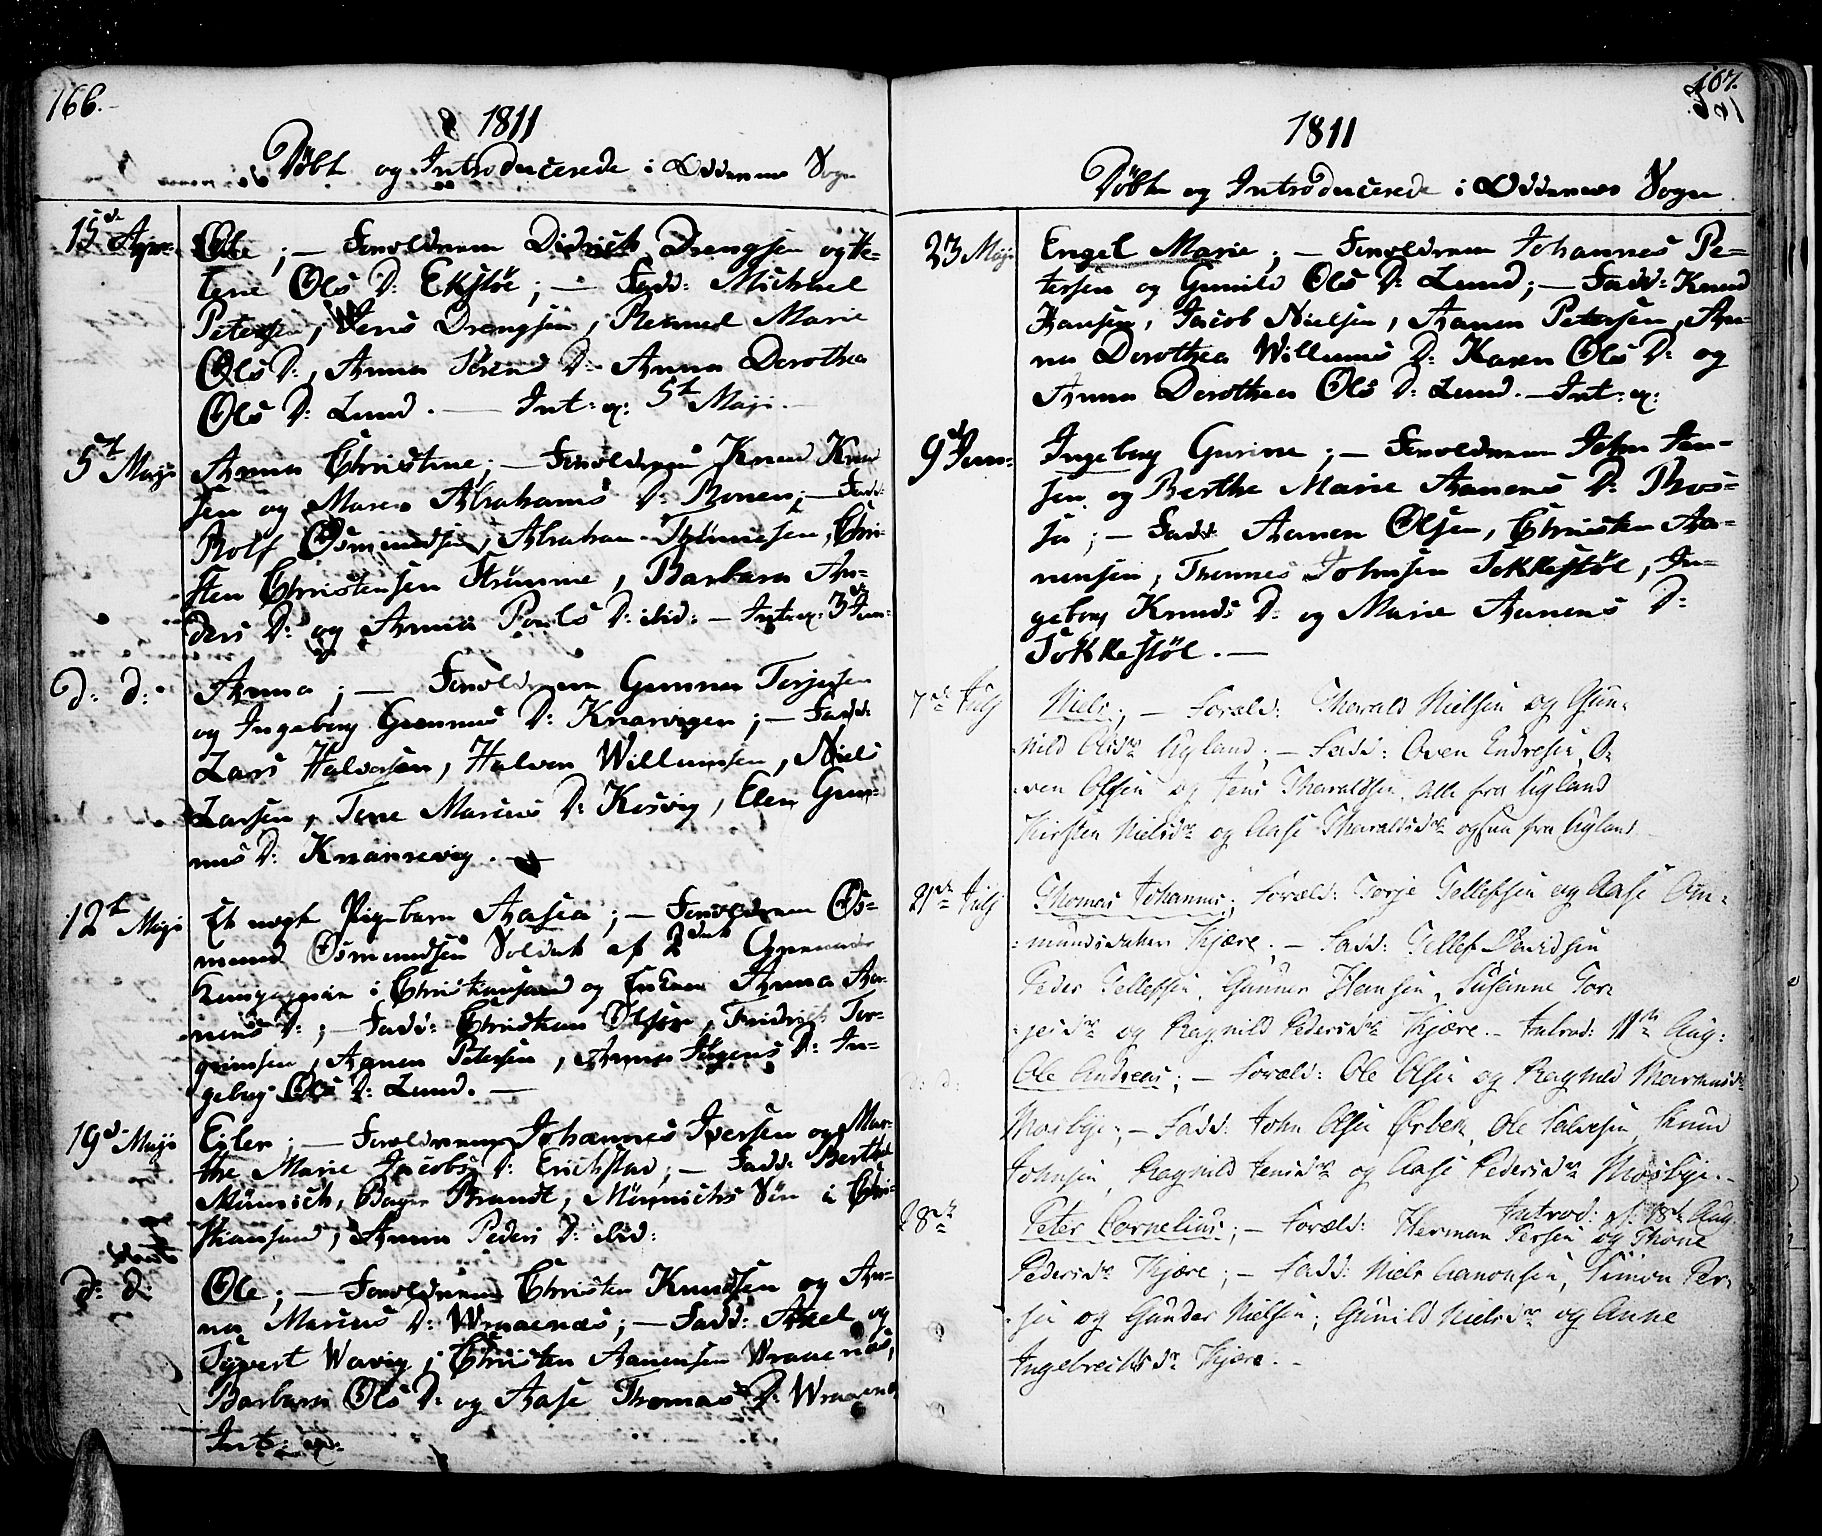 166.
1811
Døbt og Introducerede i Oddernes Sogn
15de Apr: Ole; — Forældrene Didrich Drengsen og Te-
lene Ols D: Ekstøe; — Fadd: Michael
Petersen, Jens Drengsen, Marie
Ols D:, Anna Sørens D: Anna Dorothea
Ols D: Lund. — Int: ex: 5te Maji.
5te Maji Anna Christine; — Forældrene Knud Knud
sen og Maren Abrahams D: Ronen; — Fadd:
Rolf Osmundsen, Abraham Tønnesen, Chri-
sten Christensen Strømme, Barbara An-
ders D: og Anna Pouls D: ibid: — Int: ex: 3die Jun:
d: d: Anna; — Forældrene Gunner Terjesen
og Ingeborg Gunners D: Knarvigen; — Fadd:
Lars Halvorsen, Halvor Willumsen, Niels
Larsen, Tone Marcus D: Kosvig, Elen Gun-
ners D: Knarrevig. —
12te Maji Et uægte Pigebarn Aasea; — Forældrene Os-
mund Osmundsen Soldat af 2det Grenader
Kompagnie i Christiansand og Enken Anna Aa-
nens D:; — Fadd: Christian Olsen, Fridrich Tor-
grimsen, Aanen Petersen, Anna Jørgens D: In-
geborg Ols D: Lund. —
19de Maji Eiler; — Forældrene Johannes Iversen og Mar-
the Marie Jacobs D: Erichstad; — Fadd: Berthe
Münnich, Bager Brandt, Münnichs Søn i Chri-
stiansand, Anna Peders D: ibid:
d: d: Ole; — Forældrene Christen Knudsen og An-
na Marcus D: Wraaenæs; — Fadd: Axel og
Syvert Waavig, Christen Aanensen Wraaenæs,
Barbara Ols D: og Aase Thomas D: Wraaenæs
Int: ex:
167.
1811
Døbt og Introducerede i Oddernes Sogn
23 Maji Engel Marie; — Forældrene Johannes Pe-
tersen og Gunild Ols D: Lund; — Fadd: Knud
Hansen, Jacob Nielsen, Aanen Petersen, An-
na Dorothea Willums D: Karen Ols D: og
Anna Dorothea Ols D: Lund. — Int: ex:
9de Jun: Ingeborg Gurine; — Forældrene John Jen-
sen og Berthe Marie Aanens D: Thos-
; — Fadd: Aanen Olsen, Christen Aa-
nensen, Thomes Johnsen Sokkestøl, In-
geborg Knuds D: og Marie Aanens D:
Sokkestøl. —
7de Julj Niels; — Foræld: Tharald Nielsen og Gun-
nild Olsdr Ugland; — Fadd: Oven Endresen, O-
ven Olsen og Jens Tharaldsen, alle fra Ugland
Kirsten Nielsdr og Aase Tharaldsdr ogsaa fra Ugland
21de Julj Thomas Johannes; Foræld: Torje Tellefsen og Aase Om-
mundsdatter Kjære; — Fadd: Tellef Davidsen
Peder Tellefsen, Gunner Hansen, Susanne Tor-
jesdr og Ragnild Pedersdr Kjære. — Introd: 11te Aug:
d: d Ole Andreas; — Foræld: Ole Olsen og Ragnild
Mosbye; — Fadd: John Olsen Ørbek, Ole Salvesen, Knud
Johnsen, Ragnild Jensdr og Aase Pedersdr Mosbye. —
Introd: d: 18de Aug:
28de Peter Cornelius; — Foræld: Herman Persen og Thone
Pedersdr Kjære; — Fadd: Niels Aanonsen, Simon Per-
sen og Gunder Nielsen; Gunild Nielsdr og Anne
Ingebrethsdr Kjære. —